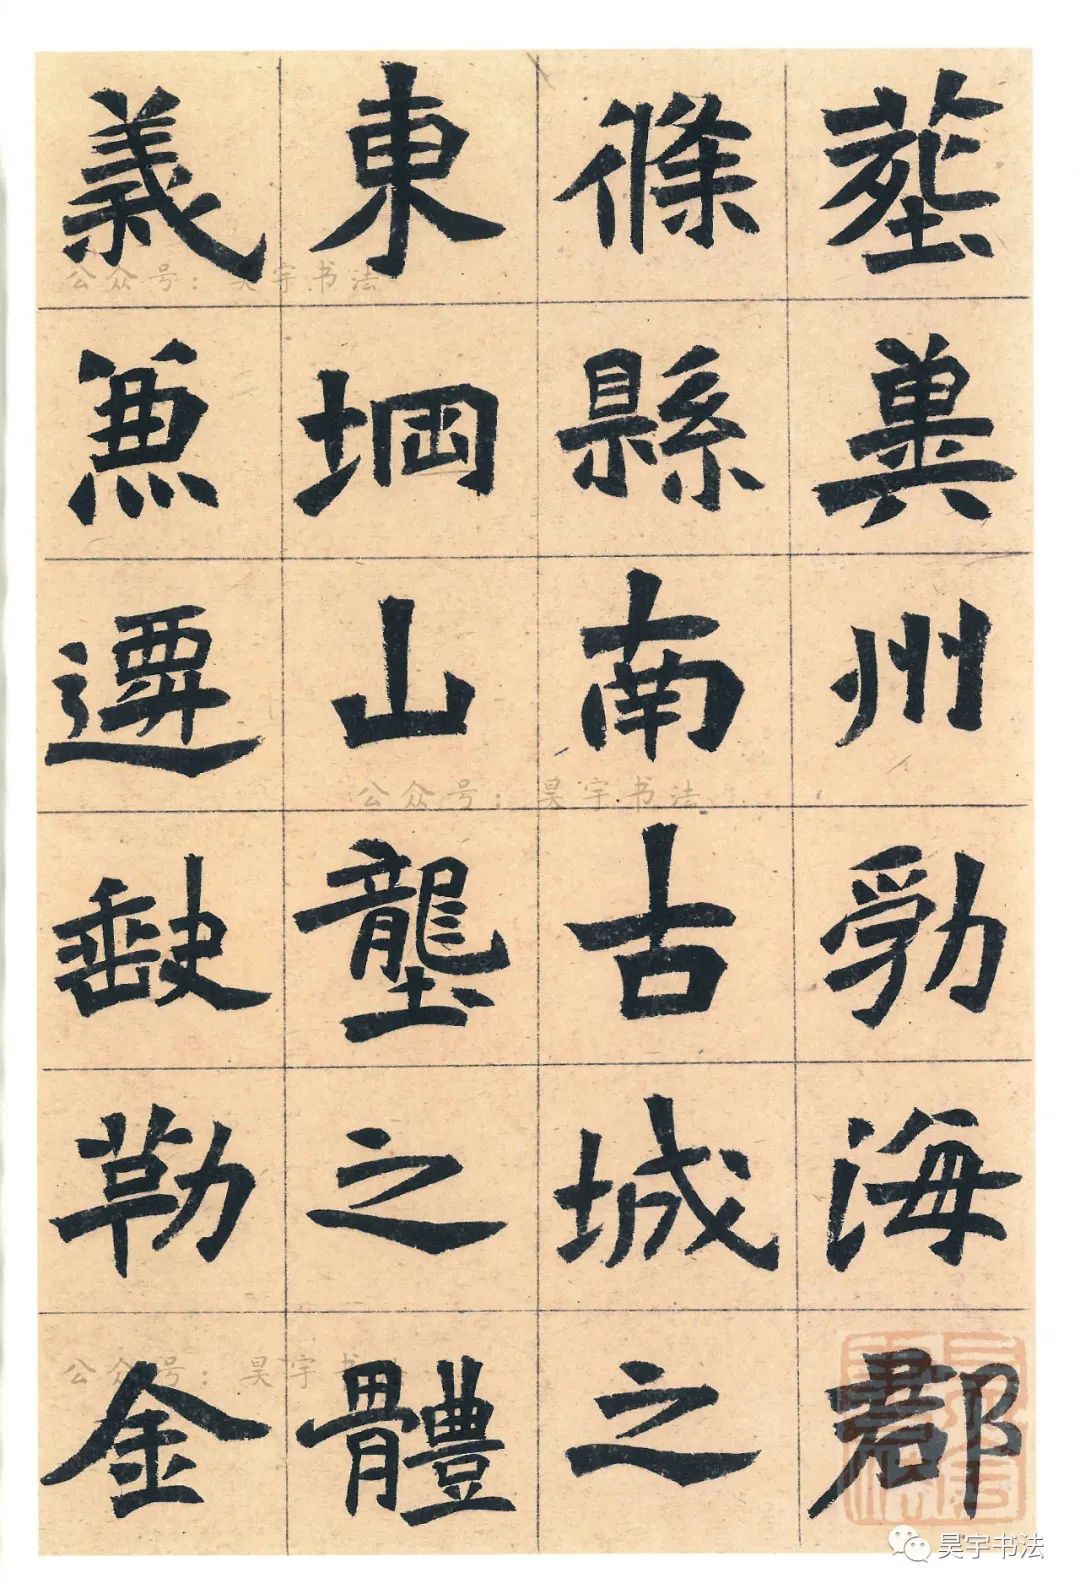 葬冀州勃海郡
條縣南古城之
東堈山壟之體
義兼遷缺勒金
公众号：昊宇书法
公众号：昊宇书法
公众号：昊宇书
昊宇书法